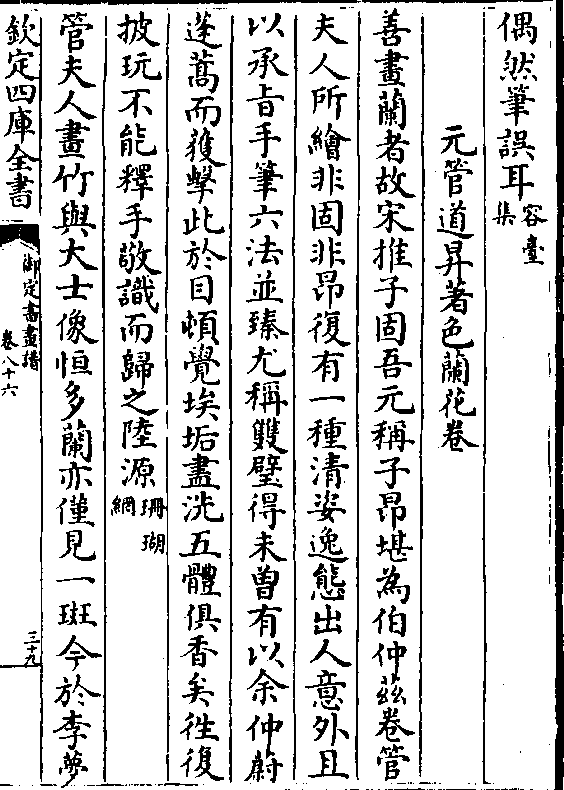 偶然筆誤耳容臺集
元管道昇著色蘭花卷
善畫蘭者故宋推子固吾元稱子昂堪為伯仲茲卷管
夫人所繪非固非昂復有一種清姿逸態出人意外且
以承旨手筆六法並臻尤稱雙璧得未曾有以余仲蔚
蓬蒿而獲擊此於目頓覺埃垢盡洗五體俱香矣徃復
披玩不能釋手敬識而歸之陸源珊瑚網
管夫人畫竹與大士像恒多蘭亦僅見一斑今於李夢
欽定四庫全書
御定書畫譜
卷八十六
三十九